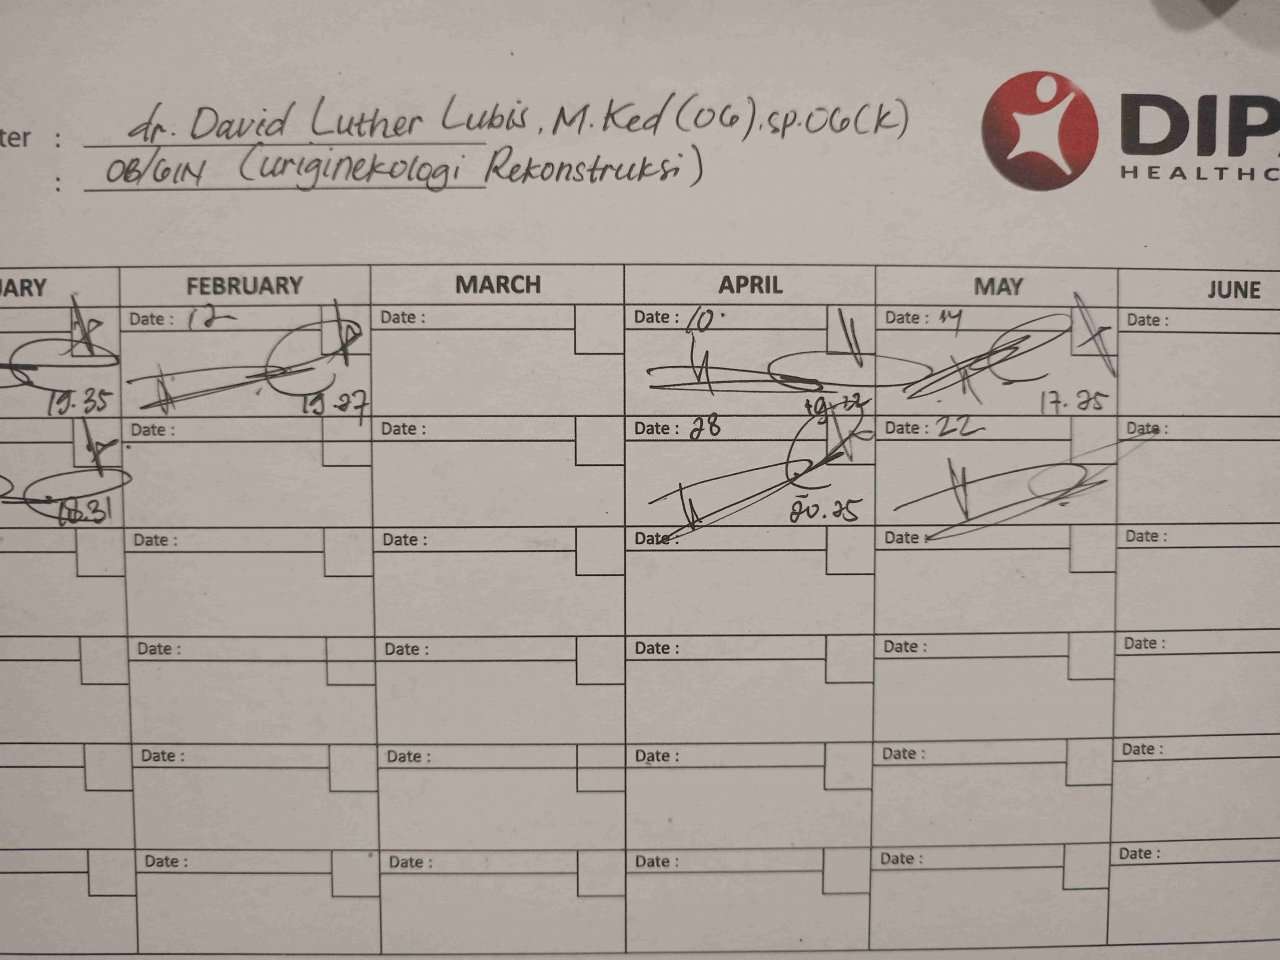 ter : dr. David Luther Lubis, M.Ked(OG).sp.OG(K)
: OB/GIN (uriginekologi Rekonstruksi)
DIPA
HEALTHC
UARY FEBRUARY MARCH APRIL MAY JUNE
Date : 12 Date : Date : 10 Date : 14 Date :
19.35 19.27 17.25
Date : Date : Date : 28 Date : 22 Date :
18.31 20.25
Date : Date : Date : Date : Date :
Date : Date : Date : Date : Date :
Date : Date : Date : Date : Date :
Date : Date : Date : Date : Date :